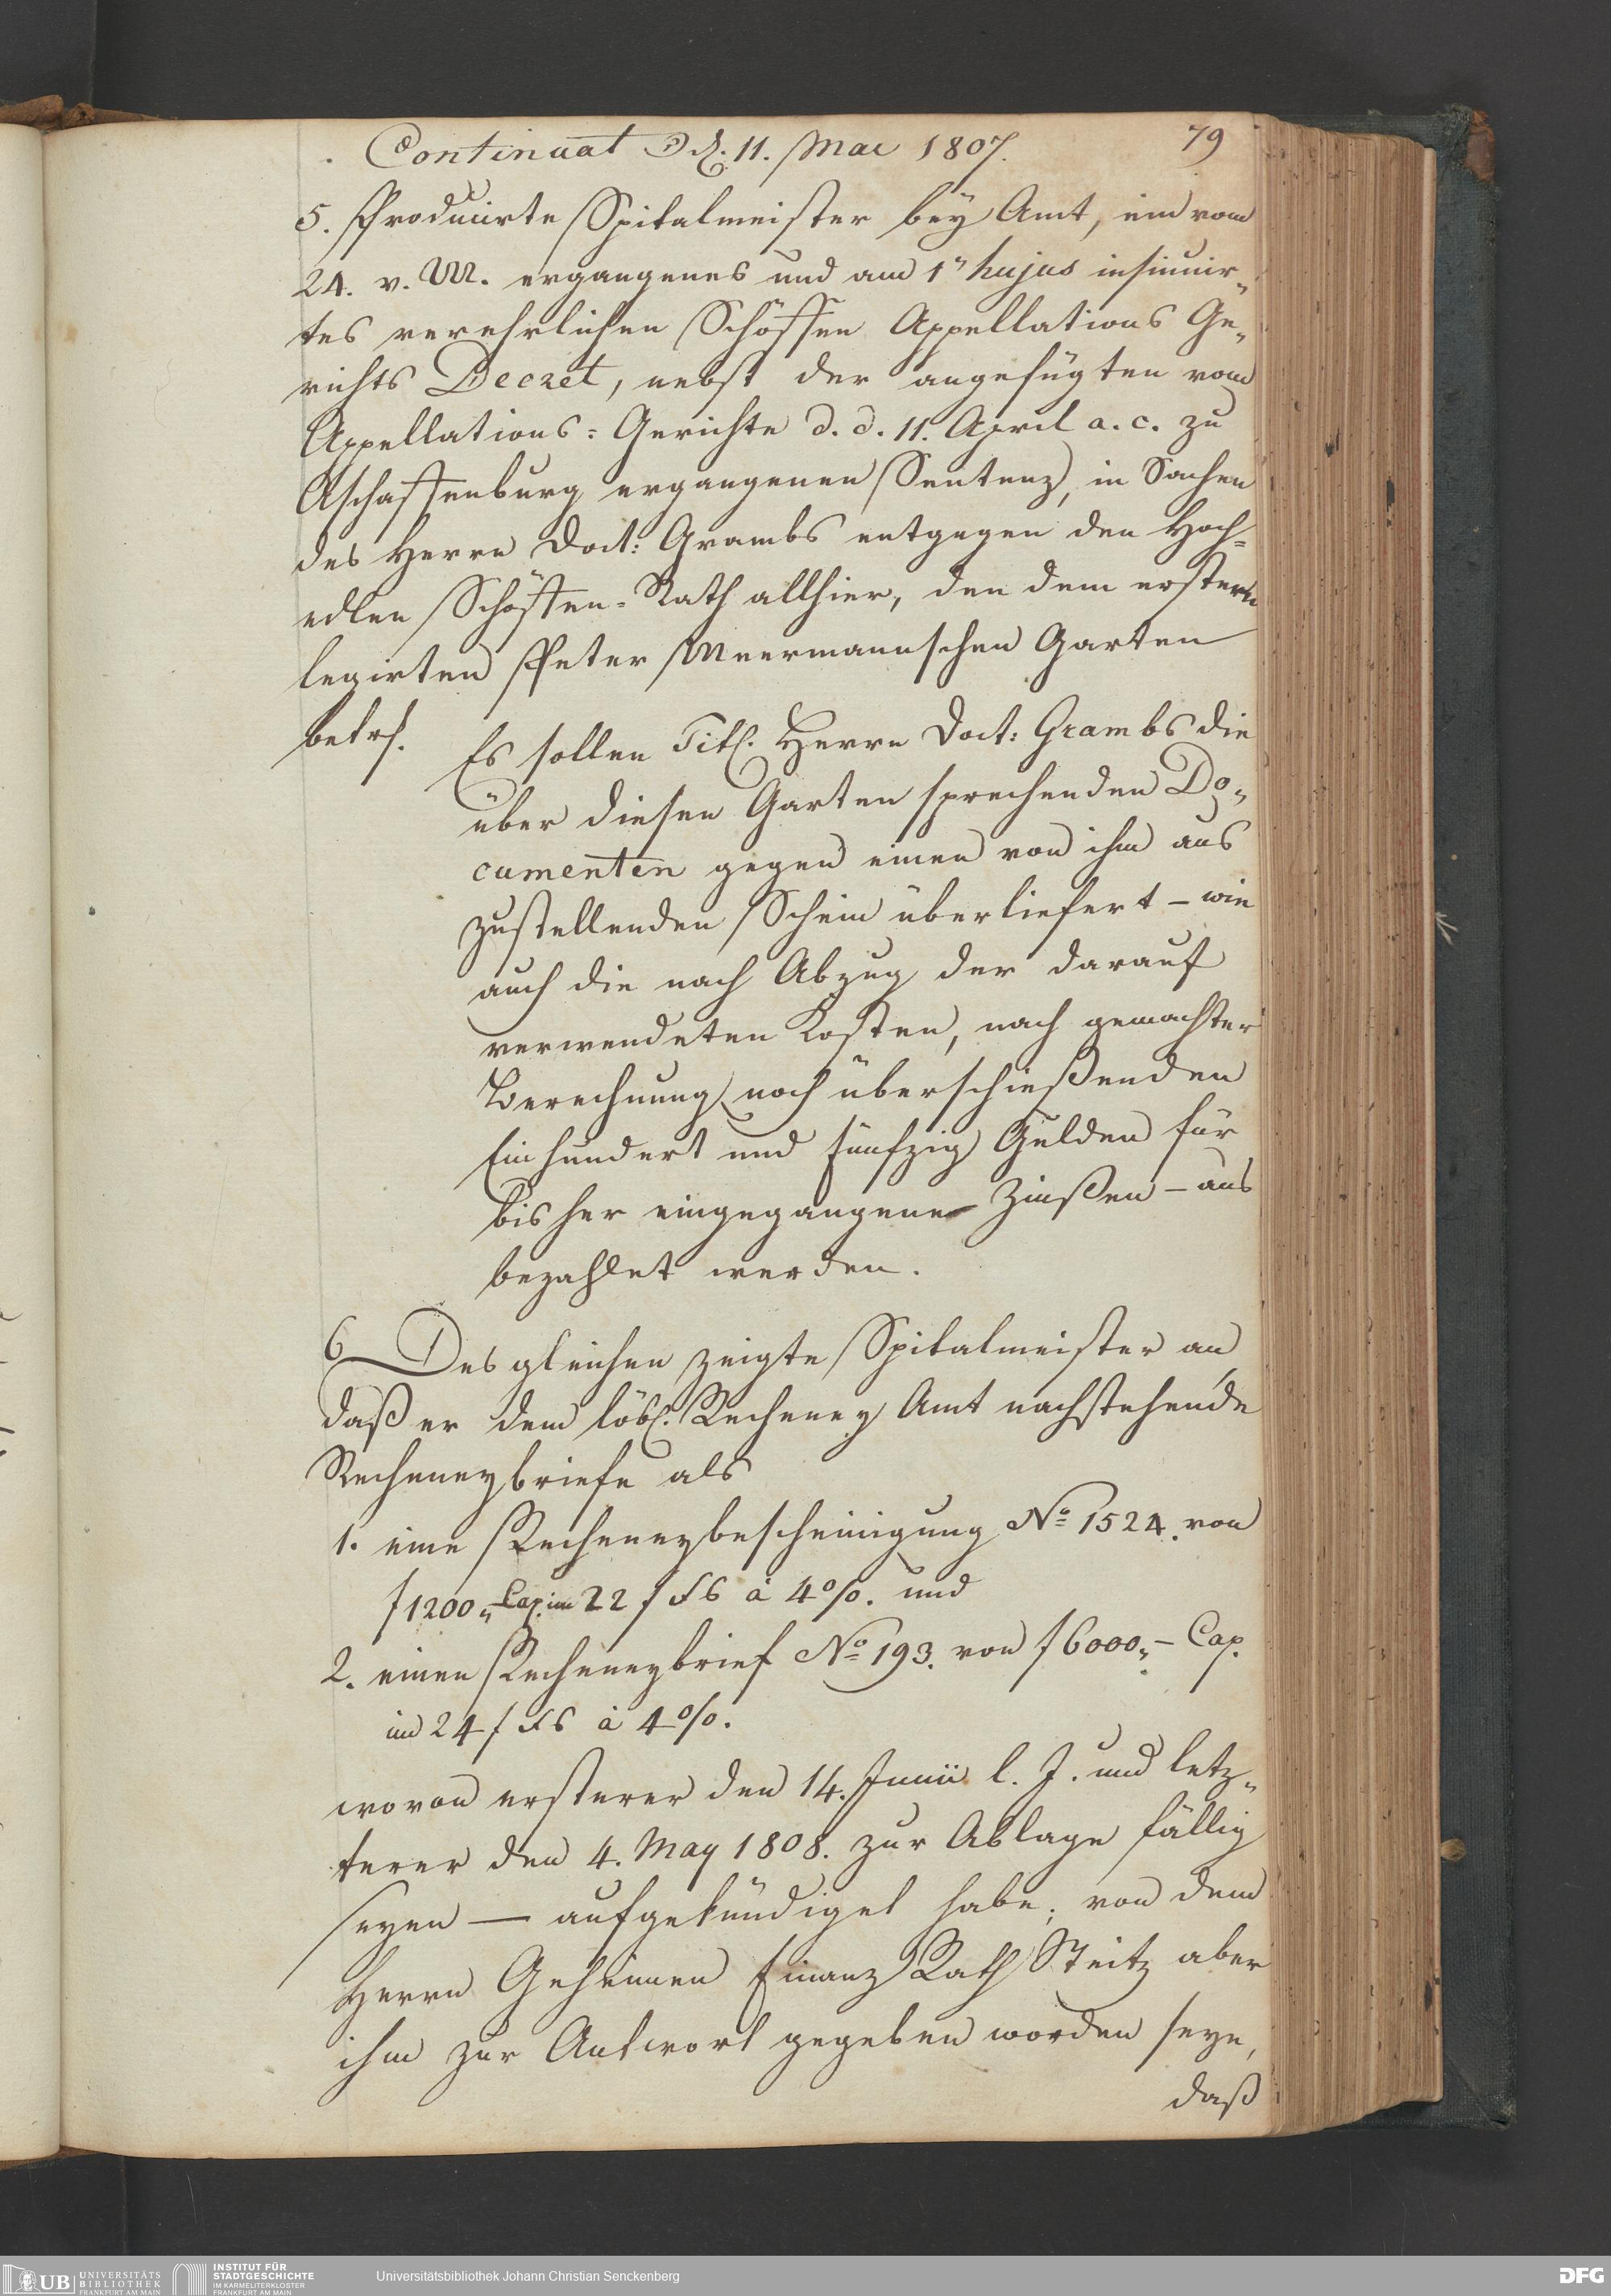 Continuat 11. Mai 1807. 79
5. Producirte Spitalmeister bey Amt, ein vom
24. v. M. ergangenes und am 1n hujus insinuir„
tes verehrlichen Schöffen Appellations Ge„
richts Decret, nebst der angefügten vom
Appellations=Gerichte d. d. 11. April a. c. zu
Aschaffenburg ergangenen Sentenz, in Sachen
des Herrn Doct: Grambs entgegen den Hoch=
edlen Schöffen=Rath allhier, den dem erstern
legirten Peter Meermannschen Garten
betrf.
Es sollen Titl. Herrn Doct: Grambs die
über diesen Garten sprechenden Do„
cumenten gegen einen von ihm aus
zustellenden Schein überliefert – wie
auch die nach Abzug der darauf
verwendeten Kosten, nach gemachter
Berechnung noch überschießenden
Einhundert und fünfzig Gulden für
bisher eingegangene Zinßen – aus
bezahlet werden.
6. Desgleichen zeigte Spitalmeister an,
daß er dem löbl. Recheney Amt nachstehende
Recheneybriefe als
1. eine Recheneybescheinigung No 1524. von
f 1200„– Cap. im 22 f Fs à 4%. und
2. einen Recheneybrief No 193. von f 6000„– Cap.
im 24 f Fs à 4%.
wovon ersterer den 14. Junii l. J. und letz„
terer den 4. May 1808. zur Ablage fällig
seyen — aufgekündiget habe; von dem
Herrn Geheimen Finanz Rath Steitz aber
ihm zur Antwort gegeben worden seye,
daß
UB UNIVERSITÄTS
BIBLIOTHEK
FRANKFURT AM MAIN
INSTITUT FÜR
STADTGESCHICHTE
IM KARMELITERKLOSTER
FRANKFURT AM MAIN
Universitätsbibliothek Johann Christian Senckenberg
DFG